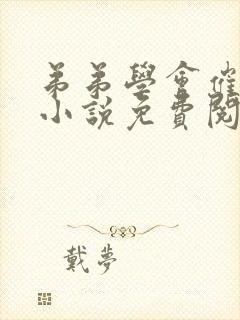 弟弟學會催
小說免費閱
戴夢